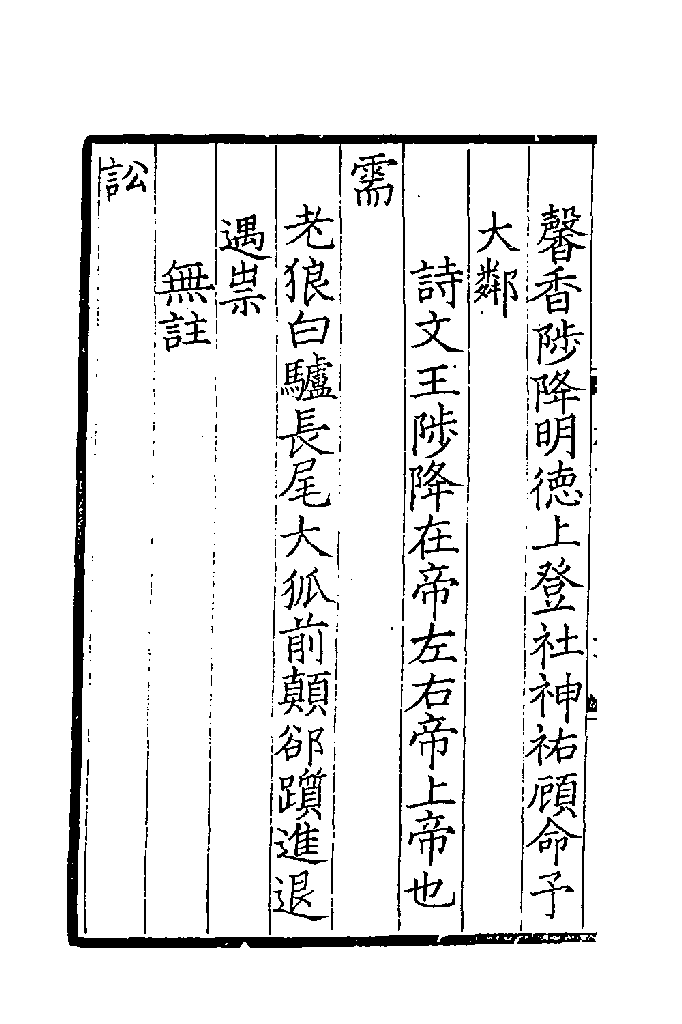 馨香陟降明德上登社神祐顧命予
大鄰
詩文王陟降在帝左右帝上帝也
需
老狼白驢長尾大狐前顛卻躓進退
遇祟
無註
訟